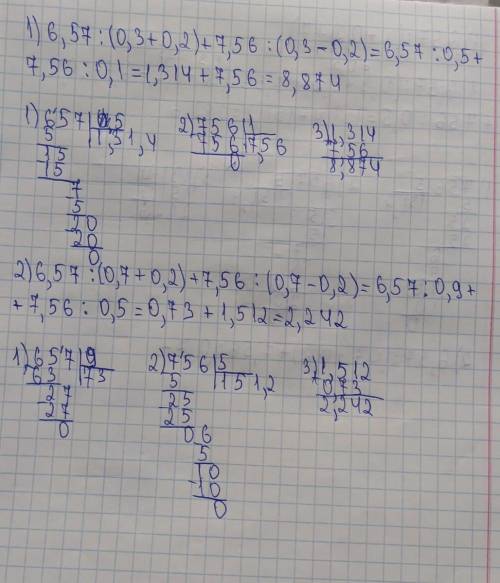 1) 6,57 : (0,3 + 0,2) + 7,56 : (0,3 - 0,2) = 6,57 : 0,5 +
7,56 : 0,1 = 1,314 + 7,56 = 8,874
1) 657 5
5 1,31,4
15
15
7
5
20
20
0
2) 756 1
756 7,56
0
3) 1,314
7,56
8,874
2) 6,57 : (0,7 + 0,2) + 7,56 : (0,7 - 0,2) = 6,57 : 0,9 +
+ 7,56 : 0,5 = 0,73 + 1,512 = 2,242
1) 657 9
63 73
27
27
0
2) 756 5
5 151,2
25
25
06
5
10
10
0
3) 1,512
0,73
2,242